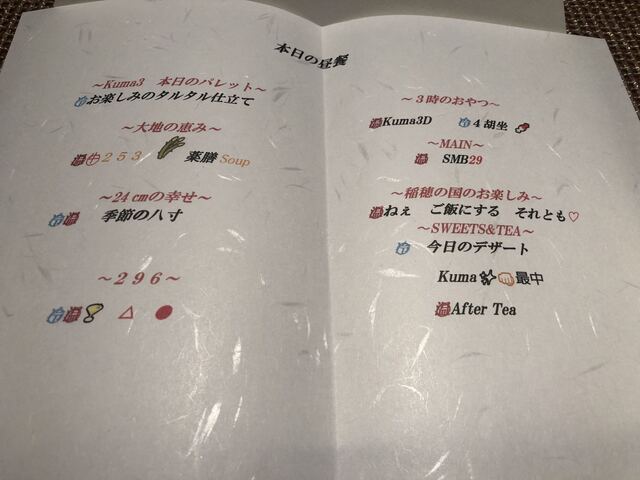 本日の昼餐
～Kuma3　本日のパレット～
冷お楽しみのタルタル仕立て
～大地の恵み～
温㊉２５３　薬膳 Soup
～24 cmの幸せ～
冷温　季節の八寸
～２９６～
冷温　△　●
～３時のおやつ～
温Kuma3D　冷４胡坐
～MAIN～
温　SMB29
～稲穂の国のお楽しみ～
温ねぇ　ご飯にする　それとも♡
～SWEETS&TEA～
冷　今日のデザート
Kuma　最中
温After Tea